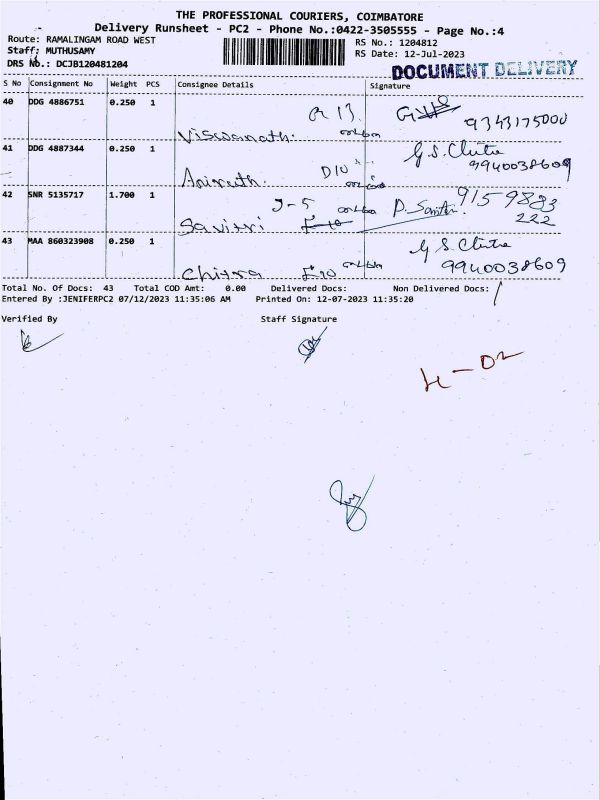 THE PROFESSIONAL COURIERS, COIMBATORE
Delivery Runsheet - PC2 - Phone No.:0422-3505555 - Page No.:4
Route: RAMALINGAM ROAD WEST
RS No.: 1204812
Staff: MUTHUSAMY
RS Date: 12-Jul-2023
DRS No.: DCJB120481204
DOCUMENT DELIVERY
S No Consignment No Weight PCS Consignee Details Signature
40 DDG 4886751 0.250 1
R 13
9343175000
Viswanath.
41 DDG 4887344 0.250 1
G.S. Chitra
D10
9940038609
Aniruth.
42 SNR 5135717 1.700 1
J-5
9159883
222
Savitri
43 MAA 860323908 0.250 1
G S. Chitra
9940038609
Chitra
Total No. Of Docs: 43 Total COD Amt: 0.00 Delivered Docs: Non Delivered Docs:
Entered By :JENIFERPC2 07/12/2023 11:35:06 AM Printed On: 12-07-2023 11:35:20
Verified By Staff Signature